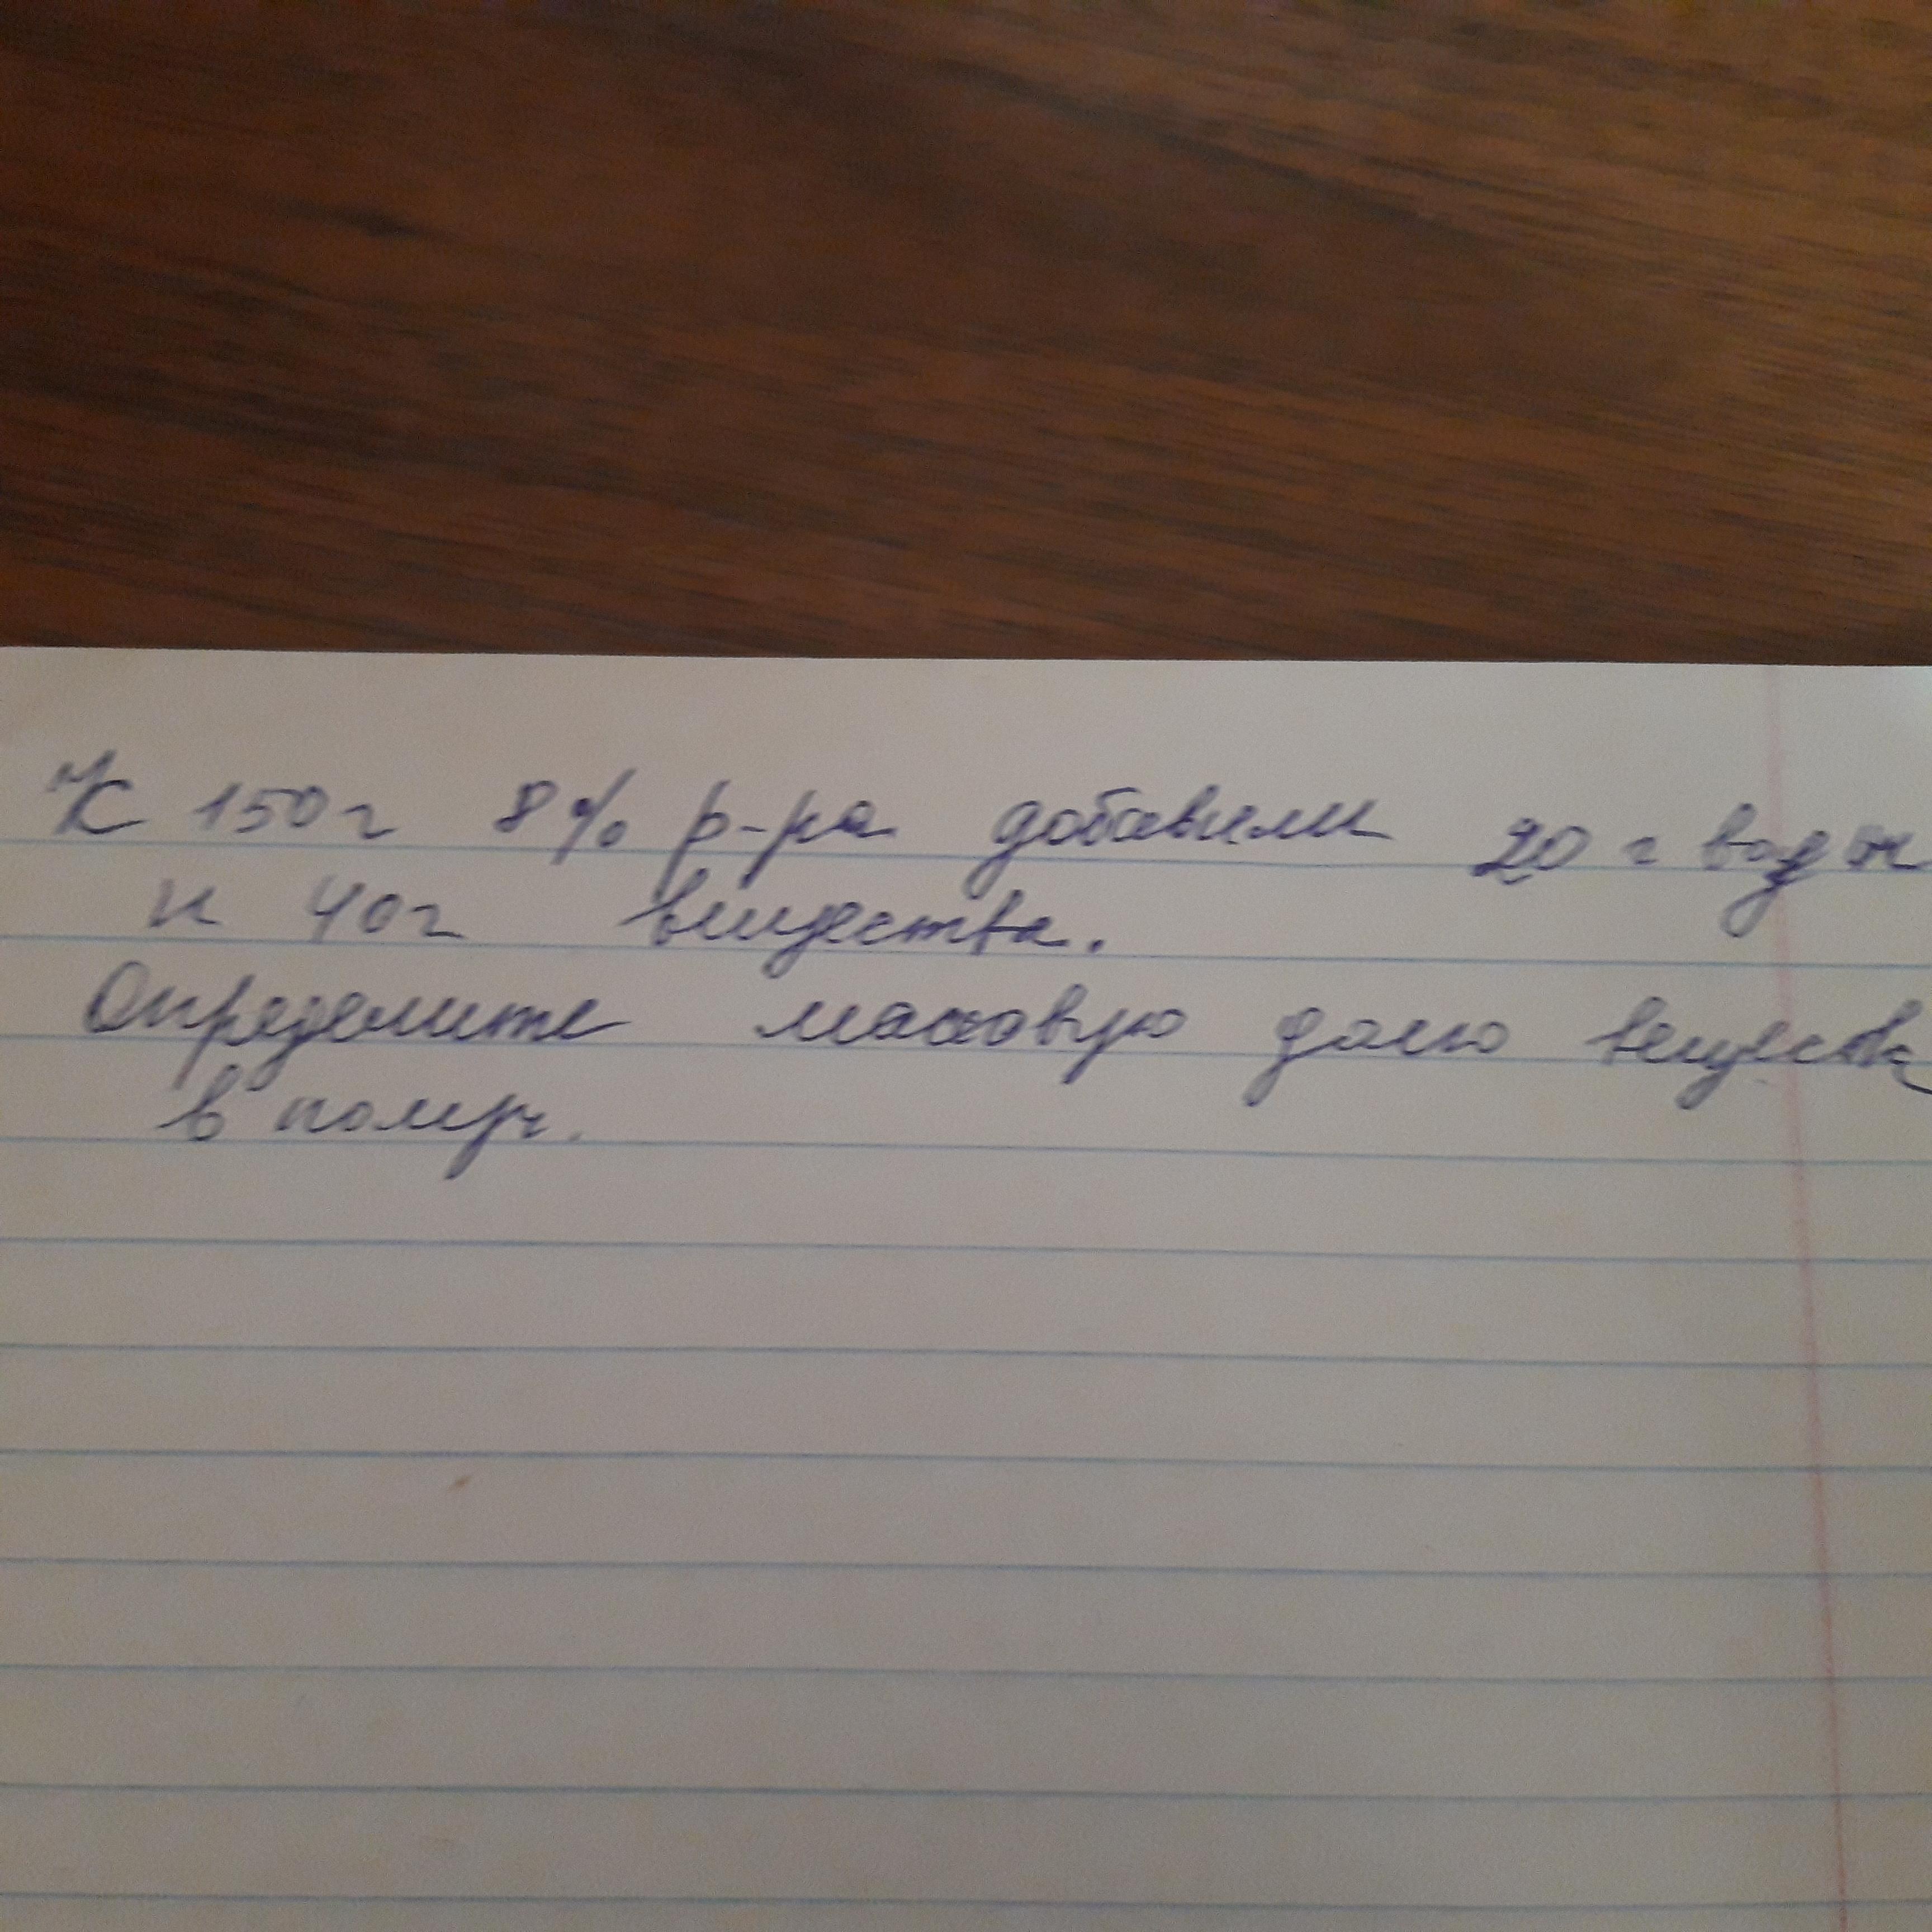 К 150 г 8% р-ра добавили 20 г воды
и 40 г вещества.
Определите массовую долю вещества
в получ.